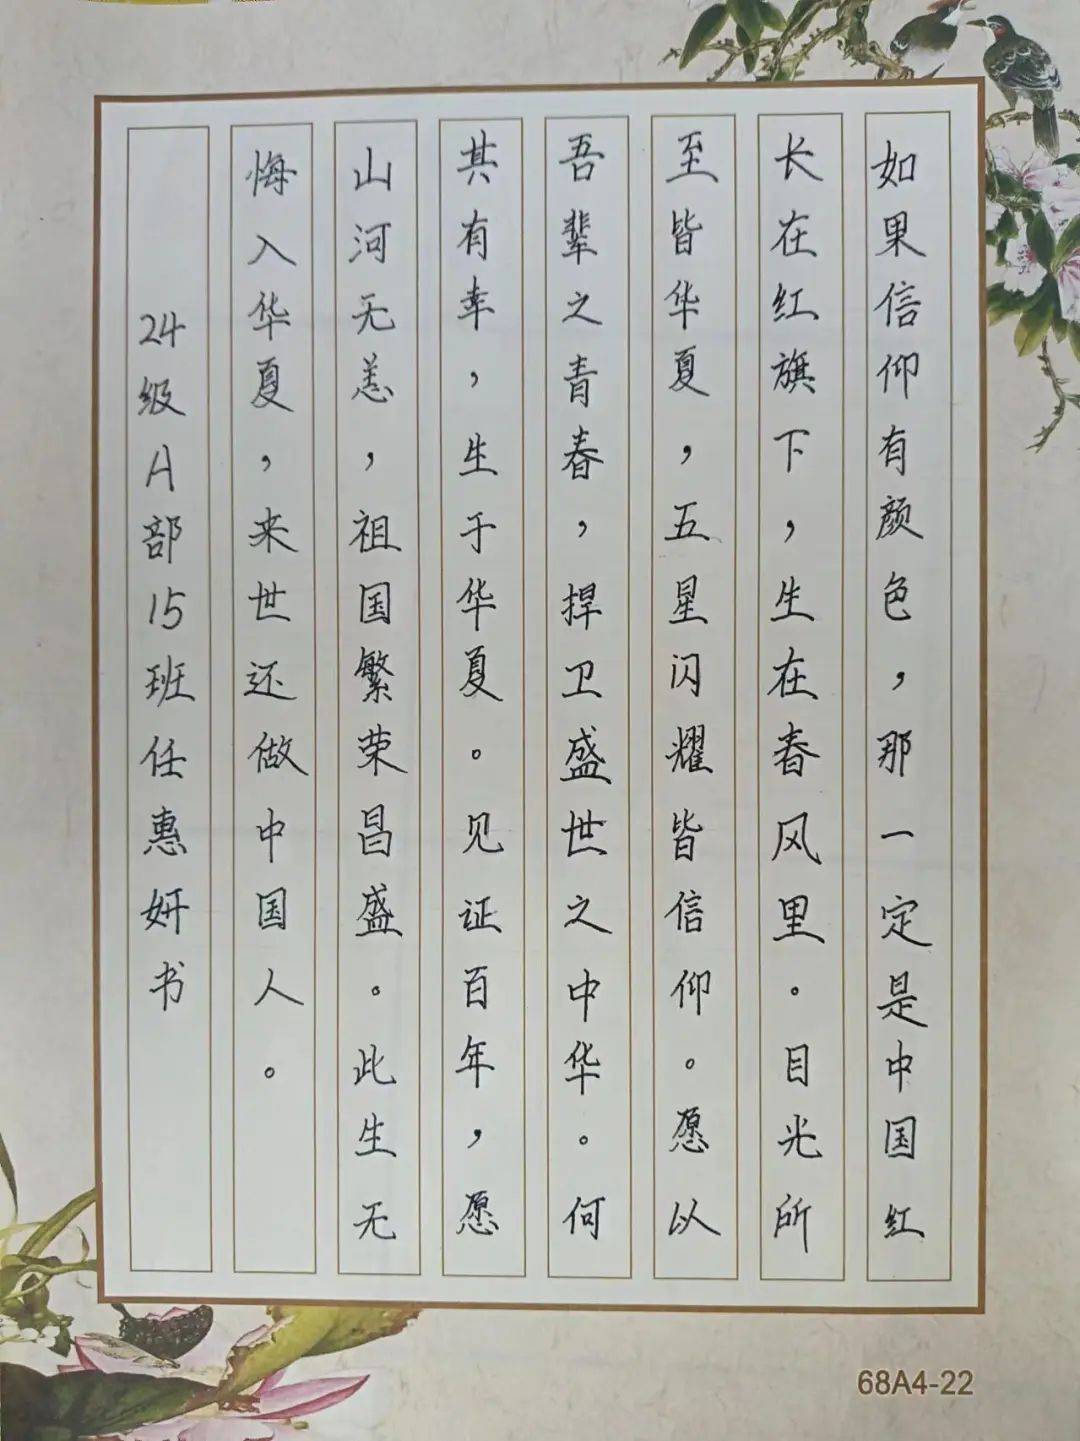 如果信仰有颜色，那一定是中国红
长在红旗下，生在春风里。目光所
至皆华夏，五星闪耀皆信仰。愿以
吾辈之青春，捍卫盛世之中华。何
其有幸，生于华夏。见证百年，愿
山河无恙，祖国繁荣昌盛。此生无
悔入华夏，来世还做中国人。
24级A部15班任惠妍书
68A4-22